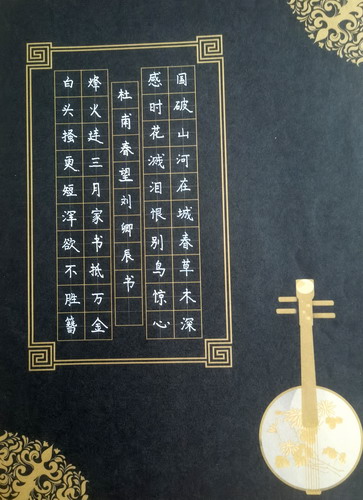 国破山河在城春草木深
感时花溅泪恨别鸟惊心
杜甫春望刘卿辰书
烽火连三月家书抵万金
白头搔更短浑欲不胜簪